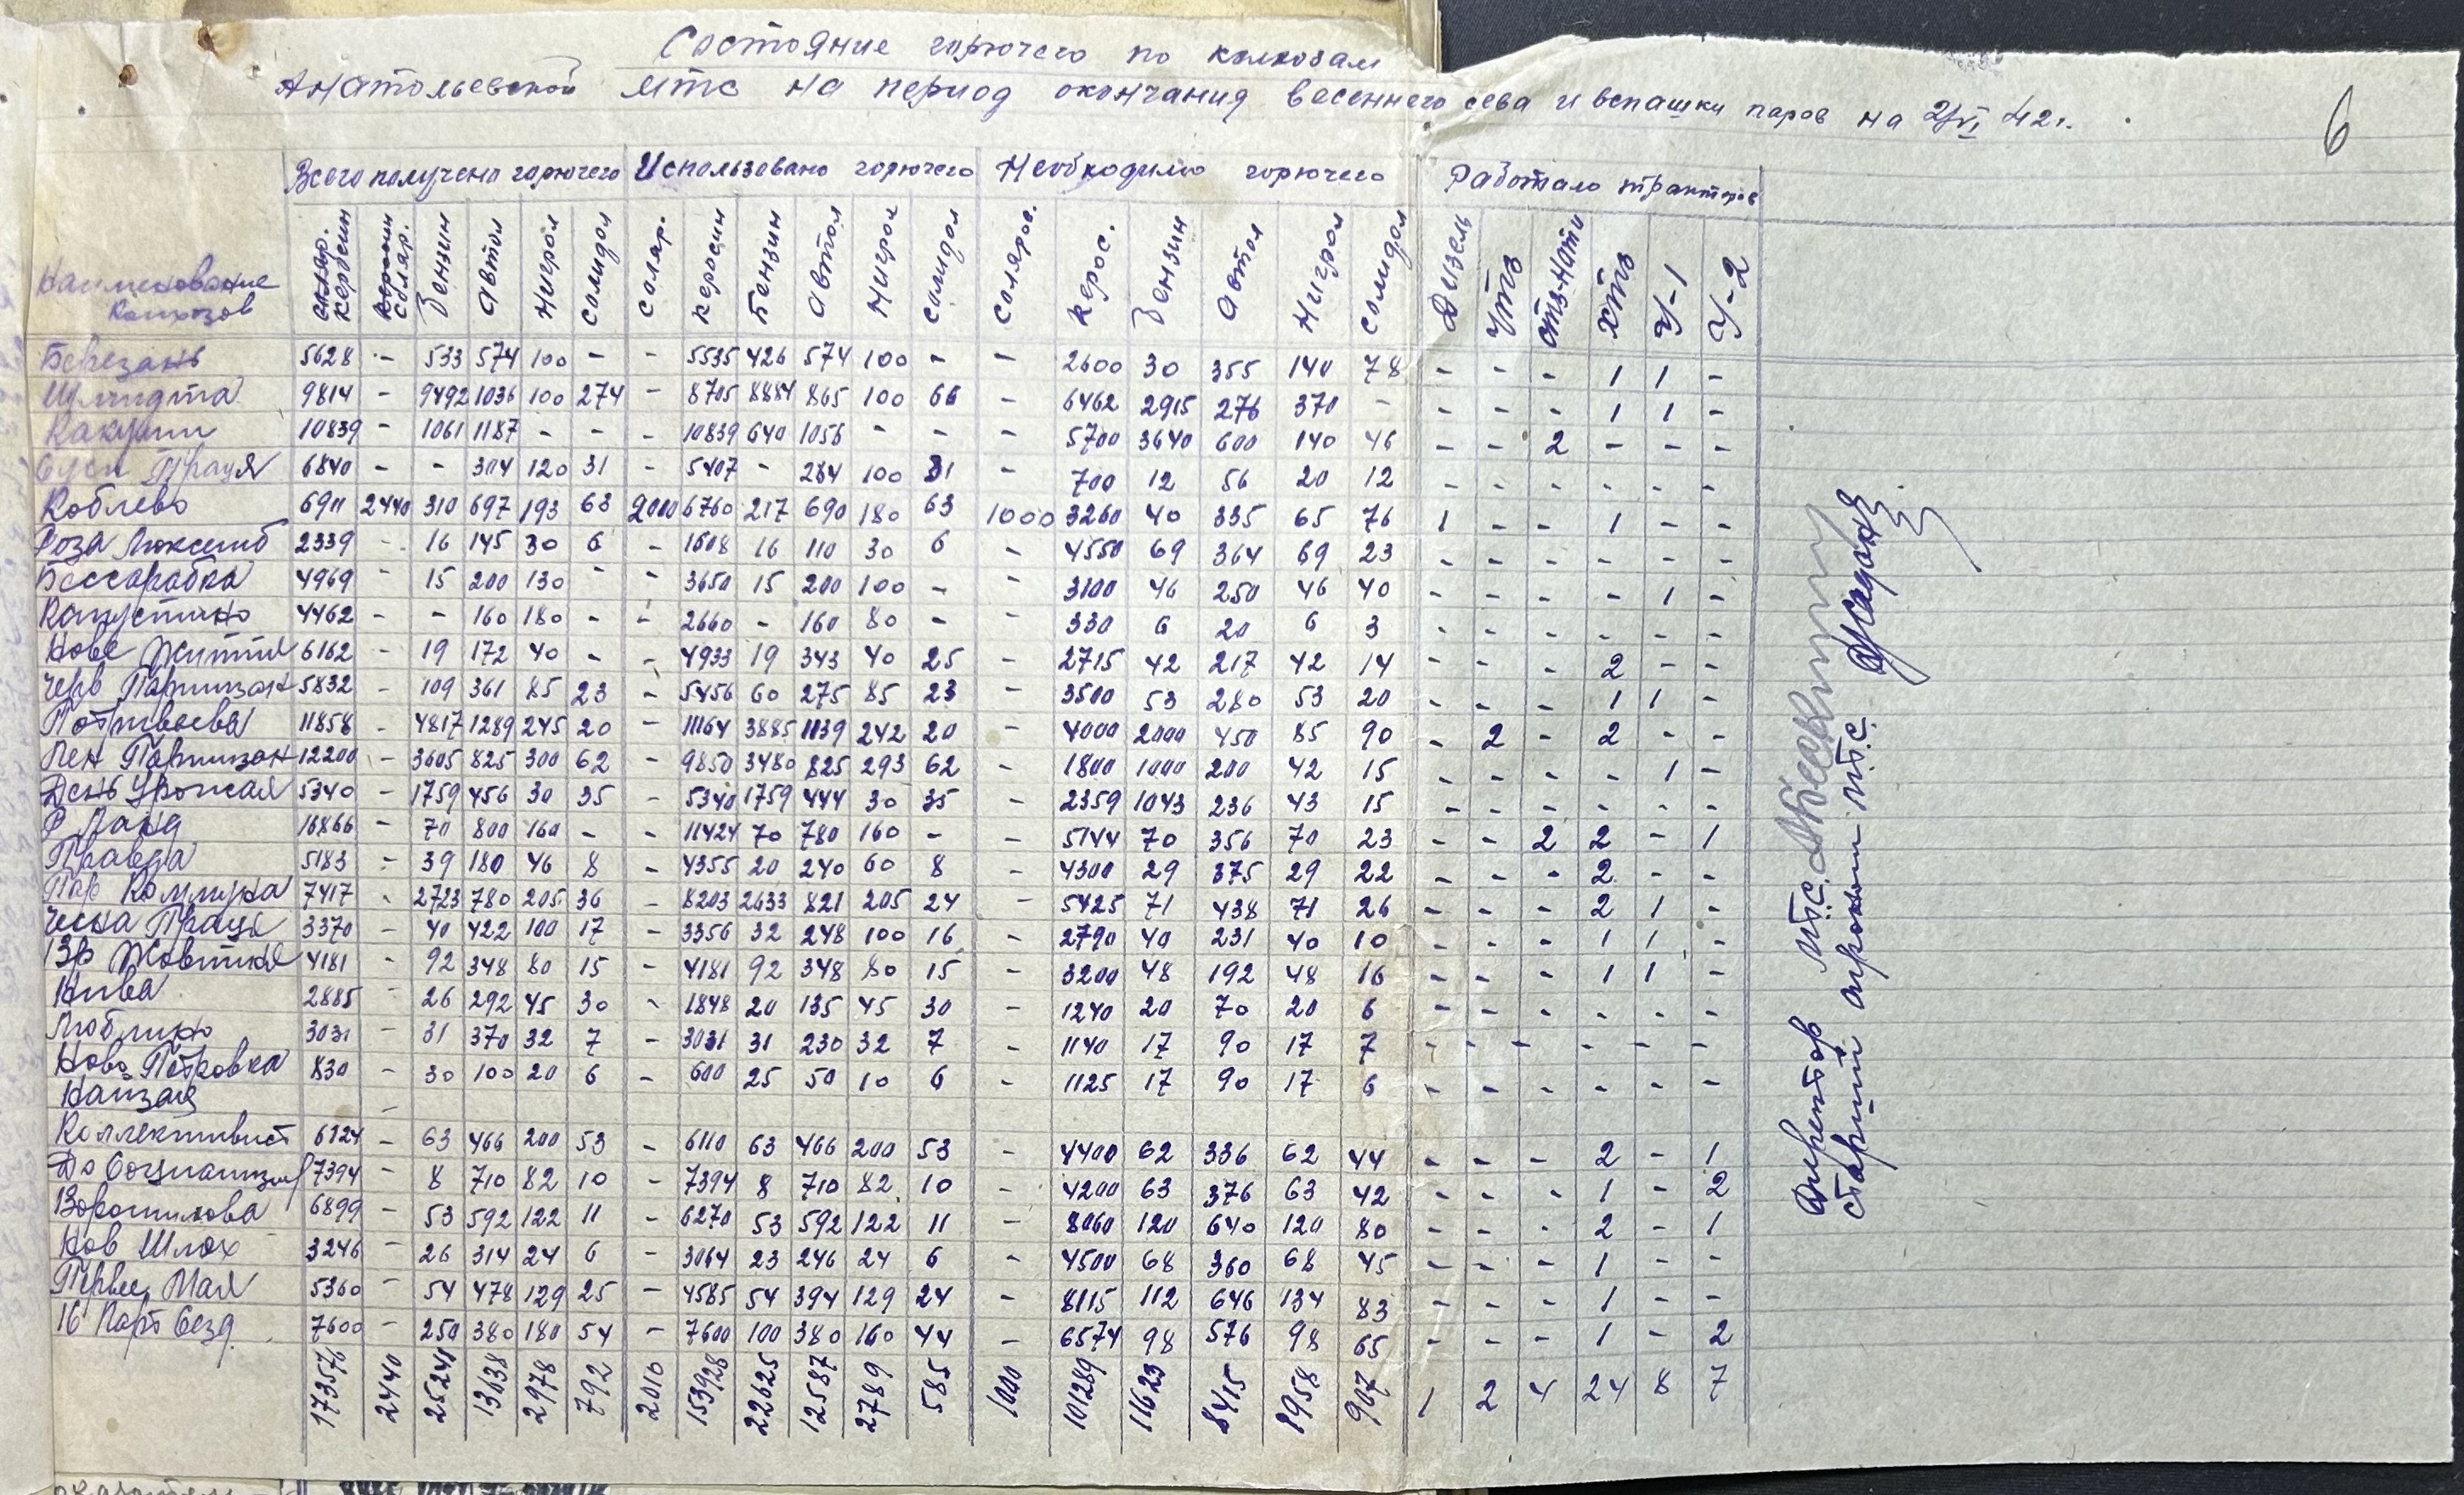 Состояние горючего по колхозам
Анатольевской МТС на период окончания весеннего сева и вспашки паров на 2/VI 42 г.
6
Всего получено горючего Использовано горючего Необходимо горючего Работало тракторов
Наименование Колхозов керосин соляр. Бензин Автол Нигрол Солидол Соляр. Керосин Бензин Автол Нигрол Солидол Соляров. Керос. Бензин Автол Нигрол Солидол Дизель ЧТЗ СТЗ-Нати ХТЗ У-1 У-2
Березань 5628 - 533 574 100 - - 5535 426 574 100 - - 2600 30 355 140 78 - - - 1 1 -
Шмидта 9814 - 9492 1036 100 274 - 8705 8884 865 100 66 - 6462 2915 276 370 - - - - 1 1 -
10839 - 1061 1187 - - - 10839 640 1056 - - - 5700 3640 600 140 46 - - 2 - - -
Праця 6840 - - 304 120 31 - 5407 - 284 100 31 - 700 12 56 20 12 - - - - - -
Коблево 6911 2440 310 697 193 63 2000 6760 217 690 180 63 1000 3260 40 335 65 76 1 - - 1 - -
Роза Люксемб 2339 - 16 145 30 6 - 1608 16 110 30 6 - 4550 69 364 69 23 - - - - - -
Бессарабка 4969 - 15 200 130 - - 3650 15 200 100 - - 3100 46 250 46 40 - - - - 1 -
Капустино 4462 - - 160 180 - - 2660 - 160 80 - - 330 6 20 6 3 - - - - - -
Нове Життя 6162 - 19 172 40 - - 4933 19 343 40 25 - 2715 42 217 42 14 - - - 2 - -
Черв Партизан 5832 - 109 361 85 23 - 5456 60 275 85 23 - 3500 53 280 53 20 - - - 1 1 -
11858 - 4817 1289 245 20 - 11164 3885 1139 242 20 - 4000 2000 450 85 90 - 2 - 2 - -
Лен Партизан 12200 - 3605 825 300 62 - 9850 3480 825 293 62 - 1800 1000 200 42 15 - - - - 1 -
День Урожая 5340 - 1759 456 30 35 - 5340 1759 444 30 35 - 2359 1043 236 43 15 - - - - - -
Р Ланд 16866 - 70 800 160 - - 11424 70 780 160 - - 5144 70 356 70 23 - - 2 2 - 1
Правда 5183 - 39 180 46 8 - 4355 20 240 60 8 - 4300 29 375 29 22 - - - 2 - -
Пар Коммуна 7417 - 2723 780 205 36 - 8203 2633 821 205 24 - 5425 71 438 71 26 - - - 2 1 -
Чесна Праця 3370 - 40 422 100 17 - 3356 32 248 100 16 - 2790 40 231 40 10 - - - 1 1 -
13р Жовтня 4181 - 92 348 80 15 - 4181 92 348 80 15 - 3200 48 192 48 16 - - - 1 1 -
Нива 2885 - 26 292 45 30 - 1848 20 135 45 30 - 1240 20 70 20 6 - - - - - -
Люблино 3031 - 31 370 32 7 - 3031 31 230 32 7 - 1140 17 90 17 7 - - - - - -
Ново Петровка 830 - 30 100 20 6 - 600 25 50 10 6 - 1125 17 90 17 6 - - - - - -
-
Коллективист 6124 - 63 466 200 53 - 6110 63 466 200 53 - 4400 62 336 62 44 - - - 2 - 1
До Социализму 7394 - 8 710 82 10 - 7394 8 710 82 10 - 4200 63 376 63 42 - - - 1 - 2
Ворошилова 6899 - 53 592 122 11 - 6270 53 592 122 11 - 8060 120 640 120 80 - - - 2 - 1
Нов Шлях 3246 - 26 314 24 6 - 3064 23 246 24 6 - 4500 68 360 68 45 - - - 1 - -
Первее Мая 5360 - 54 478 129 25 - 4585 54 394 129 24 - 8115 112 646 134 83 - - - 1 - -
16 Парт Сезд. 7600 - 250 380 180 54 - 7600 100 380 160 44 - 6574 98 576 98 65 - - - 1 - 2
173576 2440 25241 13638 2978 792 2010 153928 22625 12587 2789 585 1000 101289 11623 8415 1958 907 1 2 4 24 8 7
Директор МТС
Старший агроном МТС